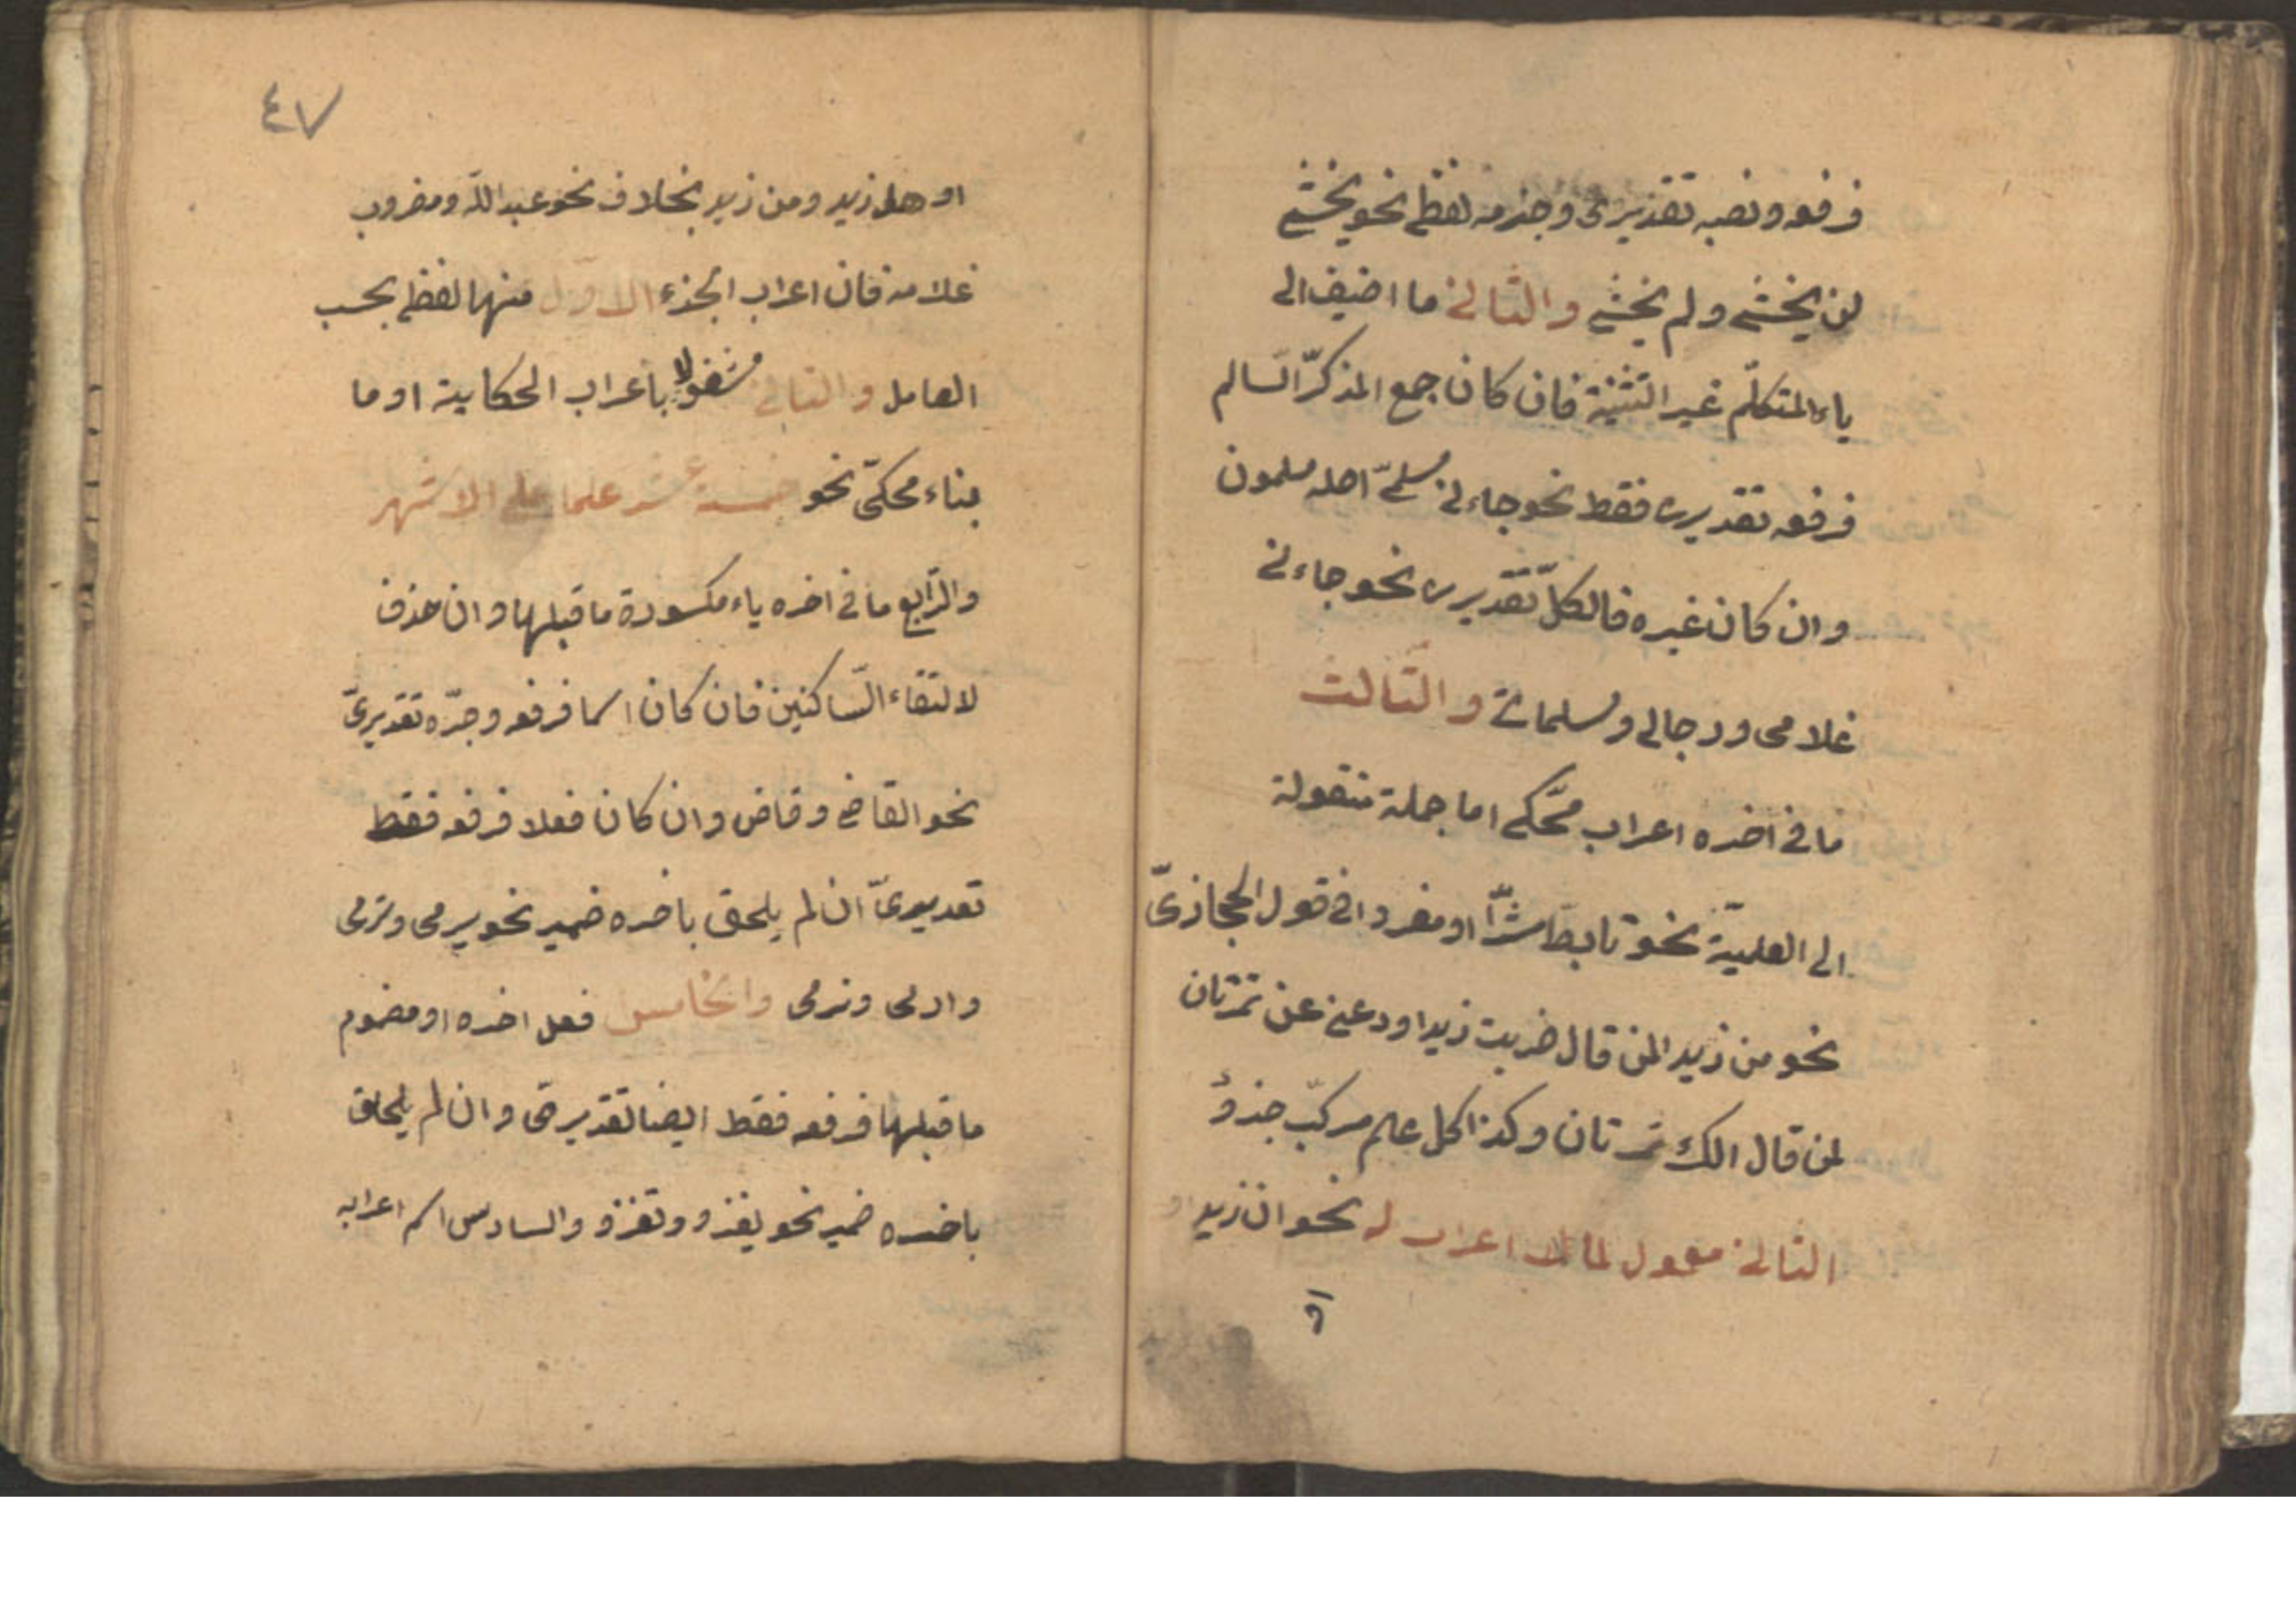 فرفعه ونصبه تقديرى وجزمه لفظى نحو يخشى
لن يخشى ولم يخش والثانى ما اضيف الى
ياء المتكلّم غير التّثنية فان كان جمع المذكّر السّالم
فرفعه تقديرى فقط نحو جاءنى مسلمىّ اصله مسلمون
وان كان غيره فالكلّ تقديرى نحو جاءنى
غلامى ورجالى ومسلماتى والثّالث
ما فى اخره اعراب محكىّ اما جملة منقولة
الى العلميّة نحو تابط شرّا او مفردا فى قول الحجازىّ
نحو من زيدا لمن قال ضربت زيدا ودعنى عن تمرتان
لمن قال الك تمرتان وكذا كل علم مركّب جزؤ
الثانى معمول لما لا اعراب له نحو ان زيدا او
او
٤٧
او هل زيد ومن زيد بخلاف نحو عبد اللّه ومضروب
غلامه فان اعراب الجزء الاوّل منها لفظى بحسب
العامل والثانى مشغولا باعراب الحكاية او ما
بناء محكىّ نحو خمسة عشر علما على الاشهر
والرّابع ما فى اخره ياء مكسورة ما قبلها وان حذف
لالتقاء السّاكنين فان كان اسما فرفعه وجرّه تقديرىّ
نحو القاضى وقاض وان كان فعلا فرفعه فقط
تقديرىّ ان لم يلحق باخره ضمير نحو يرمى وترمى
وارمى ونرمى والخامس فعل اخره او مضموم
ما قبلها فرفعه فقط ايضا تقديرىّ وان لم يلحق
باخره ضمير نحو يغزو وتغزو والسادس اسم اعرابه